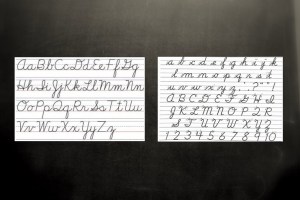 AaBbCcDdEeFfGg
HhIiJjKkLlMmNn
OoPpQqRrSsTtUu
VvWwXxYyZz
a b c d e f g h i j k
l m n o p q r s t
u v w x y z . , ? " " !
A B C D E F G H I
J K L M N O P Q R
S T U V W X Y Z
1 2 3 4 5 6 7 8 9 10